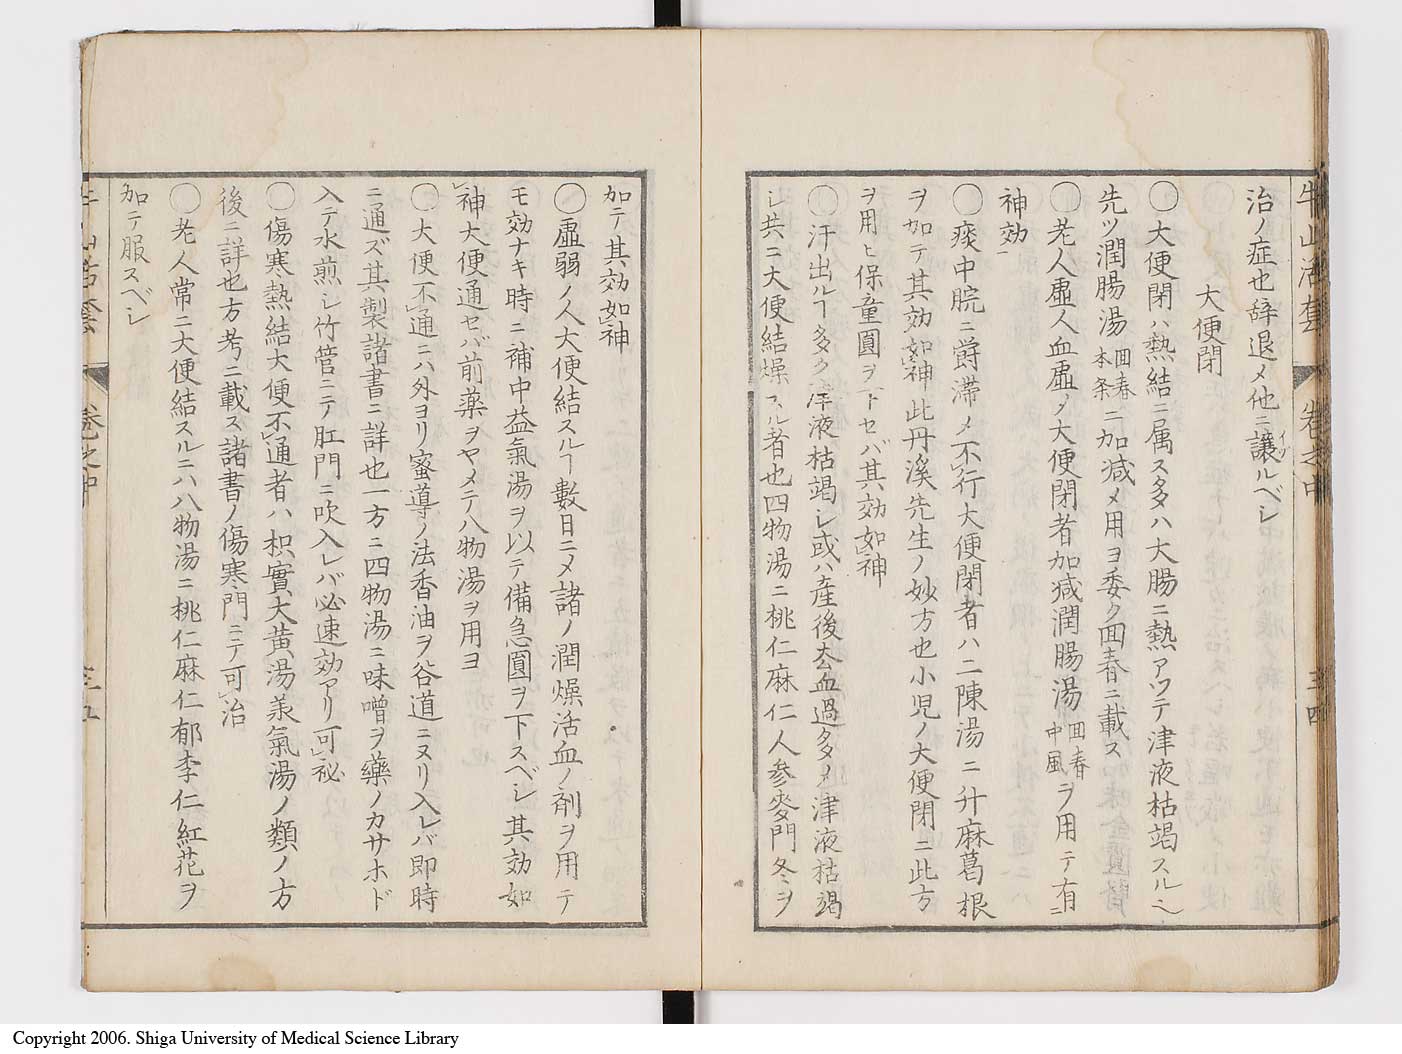 牛山活套 卷之中 三四
治ノ症也辞退メ他ニ讓ルベシ
ユヅ
大便閉
〇大便閉ハ熱結ニ属ス多ハ大腸ニ熱アツテ津液枯竭スルヿ
先ツ潤腸湯回春本条ニ加減メ用ヨ委ク回春ニ載ス
〇老人虛人血虛メ大便閉者加減潤腸湯回春中風ヲ用テ有ニ
神効一
〇痰中脘ニ欝滞メ不レ行大便閉者ハ二陳湯ニ升麻葛根
ヲ加テ其効如レ神此丹溪先生ノ妙方也小児ノ大便閉ニ此方
ヲ用ヒ保童圓ヲ下セバ其効如レ神
〇汗出ルヿ多ク津液枯竭シ或ハ産後去血過多メ津液枯竭
シ共ニ大便結燥スル者也四物湯ニ桃仁麻仁人参麥門冬ヲ
加テ其効如レ神
〇虛弱ノ人大便結スルヿ數日ニメ諸ノ潤燥活血ノ剤ヲ用テ
モ効ナキ時ニ補中益氣湯ヲ以テ備急圓ヲ下スベシ其効如
レ神大便通セバ前薬ヲヤメテ八物湯ヲ用ヨ
〇大便不レ通ニハ外ヨリ蜜導ノ法香油ヲ谷道ニヌリ入レバ即時
ニ通ズ其製諸書ニ詳也一方ニ四物湯ニ味噌ヲ藥ノカサホド
入テ水煎シ竹管ニテ肛門ニ吹入レバ必速効アリ可レ祕
〇傷寒熱結大便不レ通者ハ枳實大黄湯承氣湯ノ類ノ方
後ニ詳也方考ニ載ス諸書ノ傷寒門ニテ可レ治
〇老人常ニ大便結スルニハ八物湯ニ桃仁麻仁郁李仁紅花ヲ
加テ服スベシ
牛山活套 卷之中 三五
Copyright 2006. Shiga University of Medical Science Library